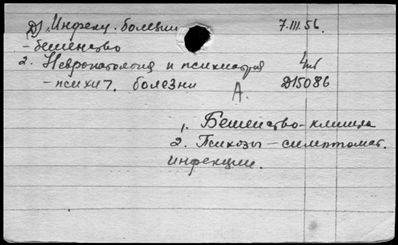 Д) Инфекц. болезни 7.III.56.
- бешенство
2. Невропатология и психиатрия
- психич. болезни А. Д15086
1. Бешенство - клиника
2. Психозы - симптомат.
инфекции.